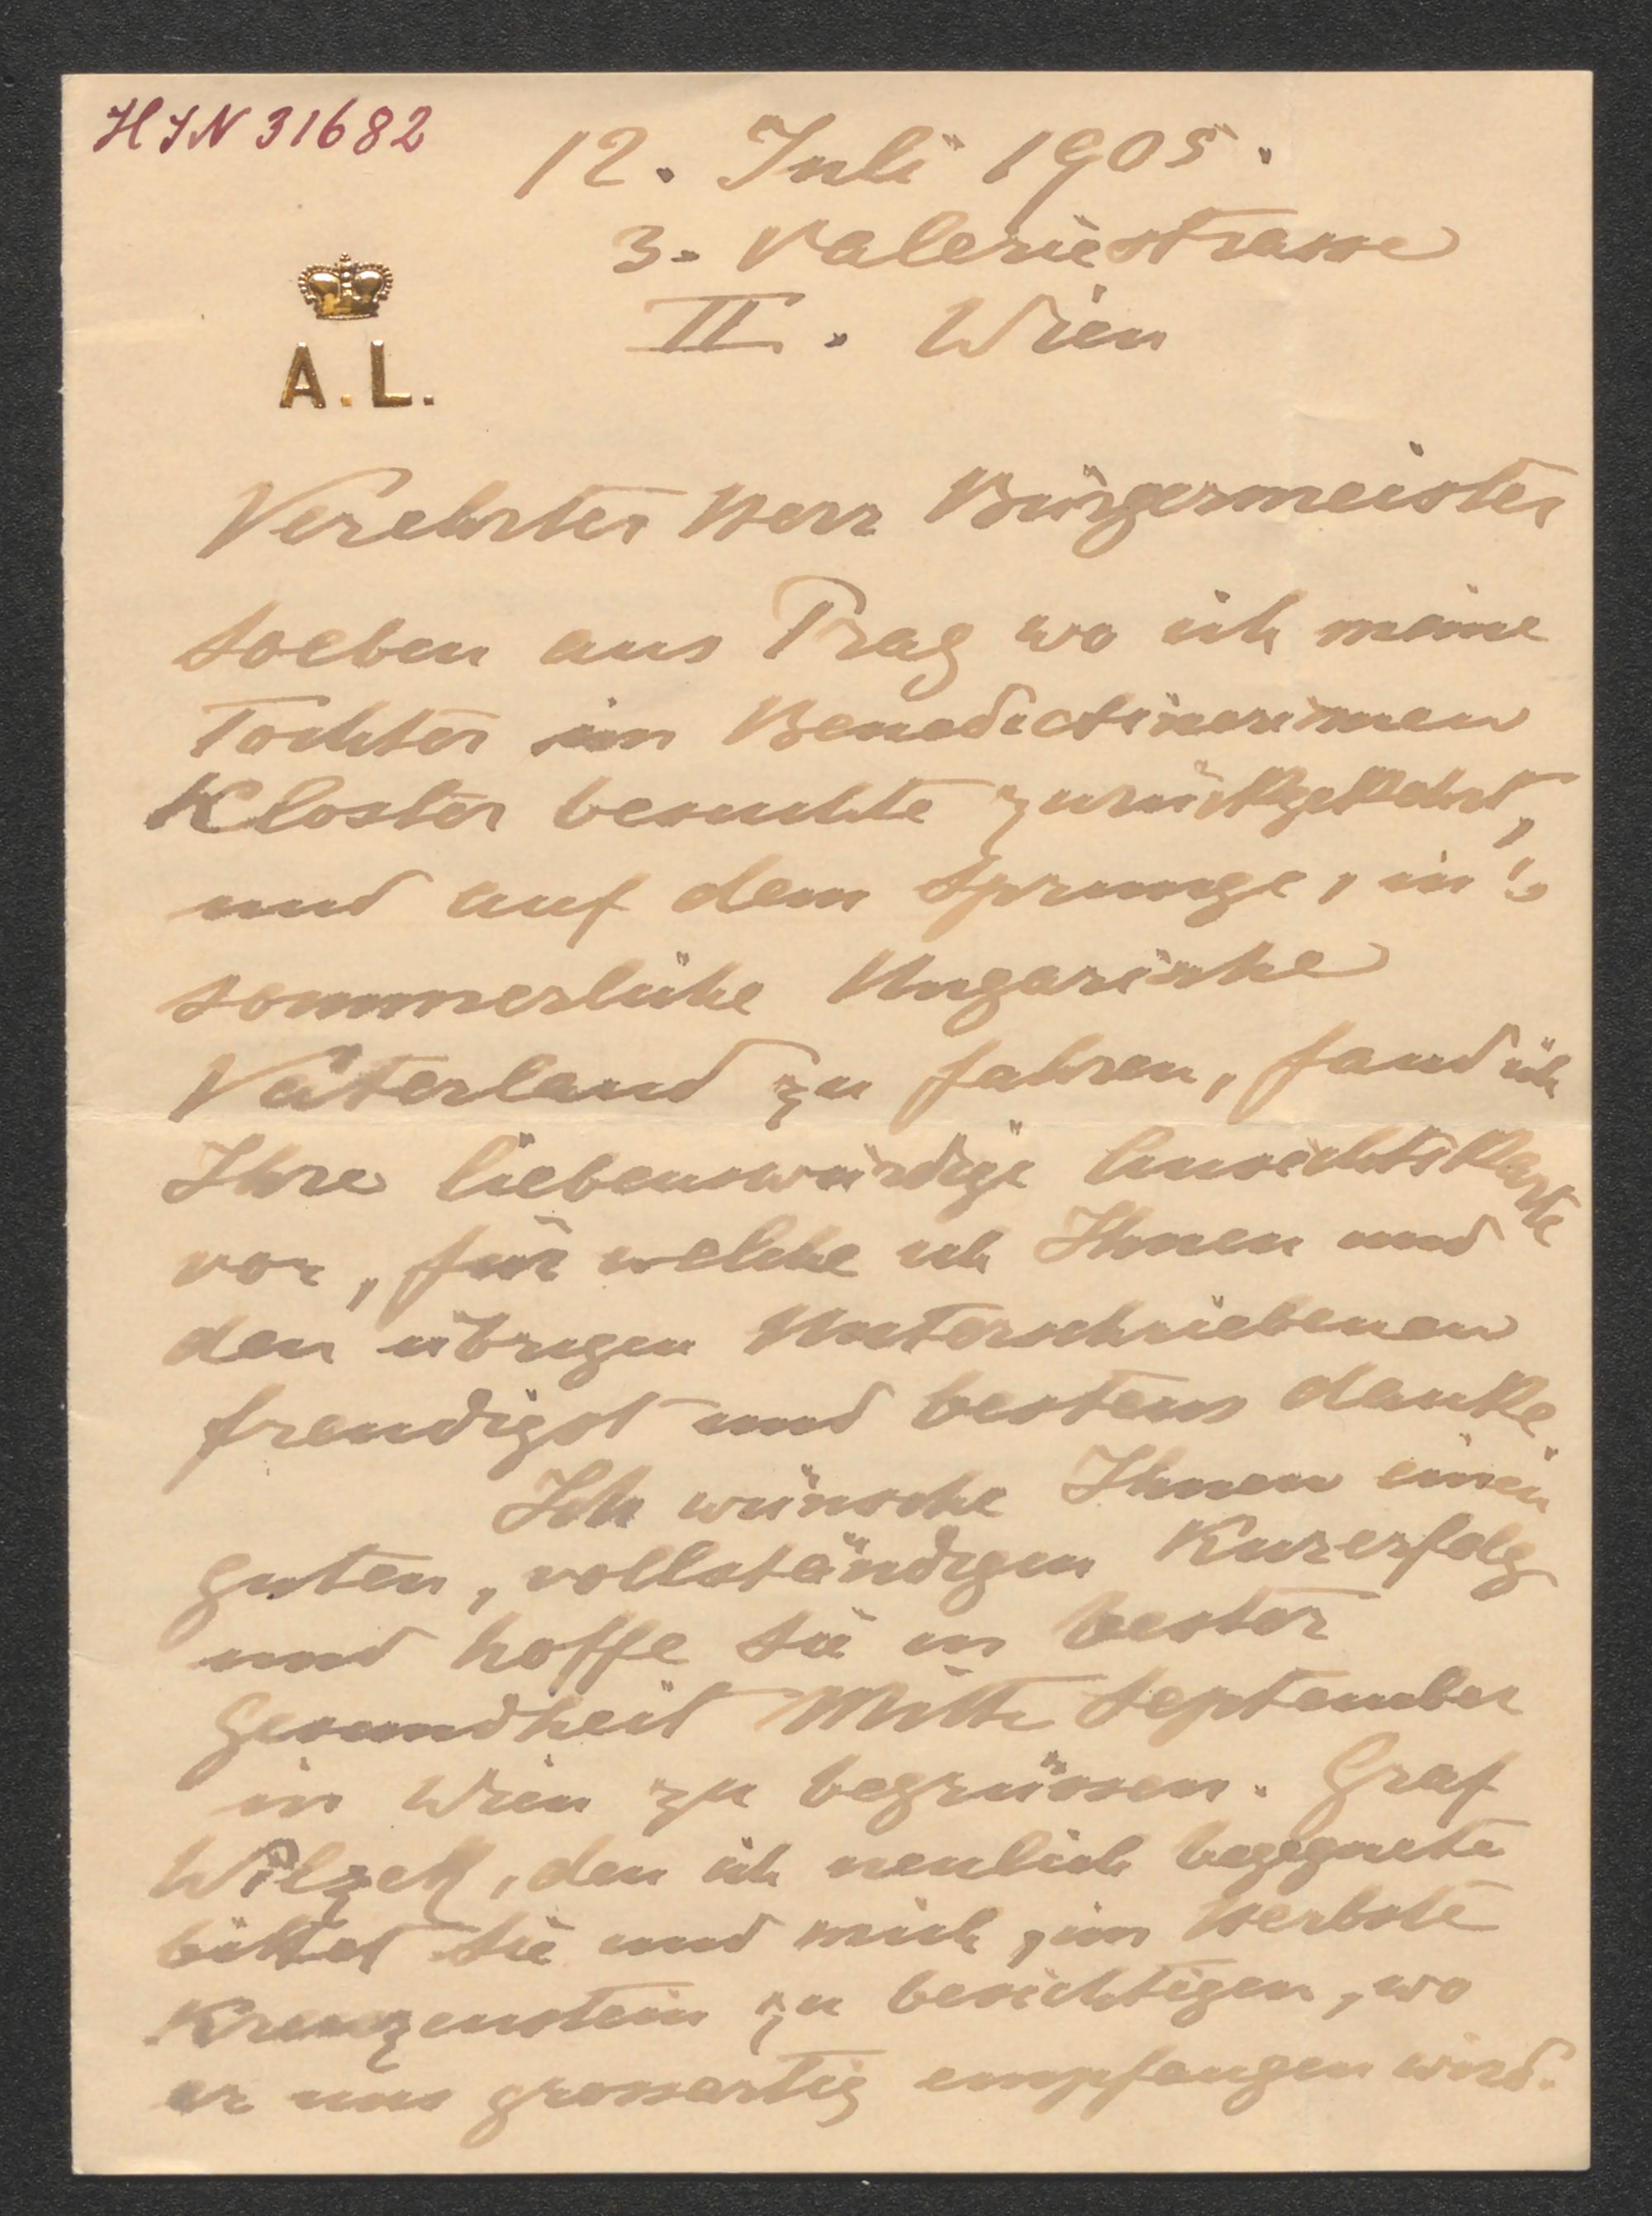 HIN 31682
12. Juli 1905.
3. Valeriestrasse
II. Wien
A.L.
Verehrter Herr Bürgermeister
soeben aus Prag wo ich meine
Tochter im Benedictinerinnen
Kloster besuchte zurückgekehrt,
und auf dem Sprunge, in's
sommerliche Ungarische
Vaterland zu fahren, fand ich
Ihre liebenswürdige Ansichtskarte
vor, für welche ich Ihnen und
den übrigen Unterschriebenen
freudigst und bestens danke.
Ich wünsche Ihnen einen
guten, vollständigen Kurerfolg
und hoffe Sie in bester
Gesundheit Mitte September
in Wien zu begrüssen. Graf
Wilzek, den ich neulich begegnete
bittet Sie und mich, im Herbste
Kreuzenstein zu besichtigen, wo
er uns grossartig empfangen wird.